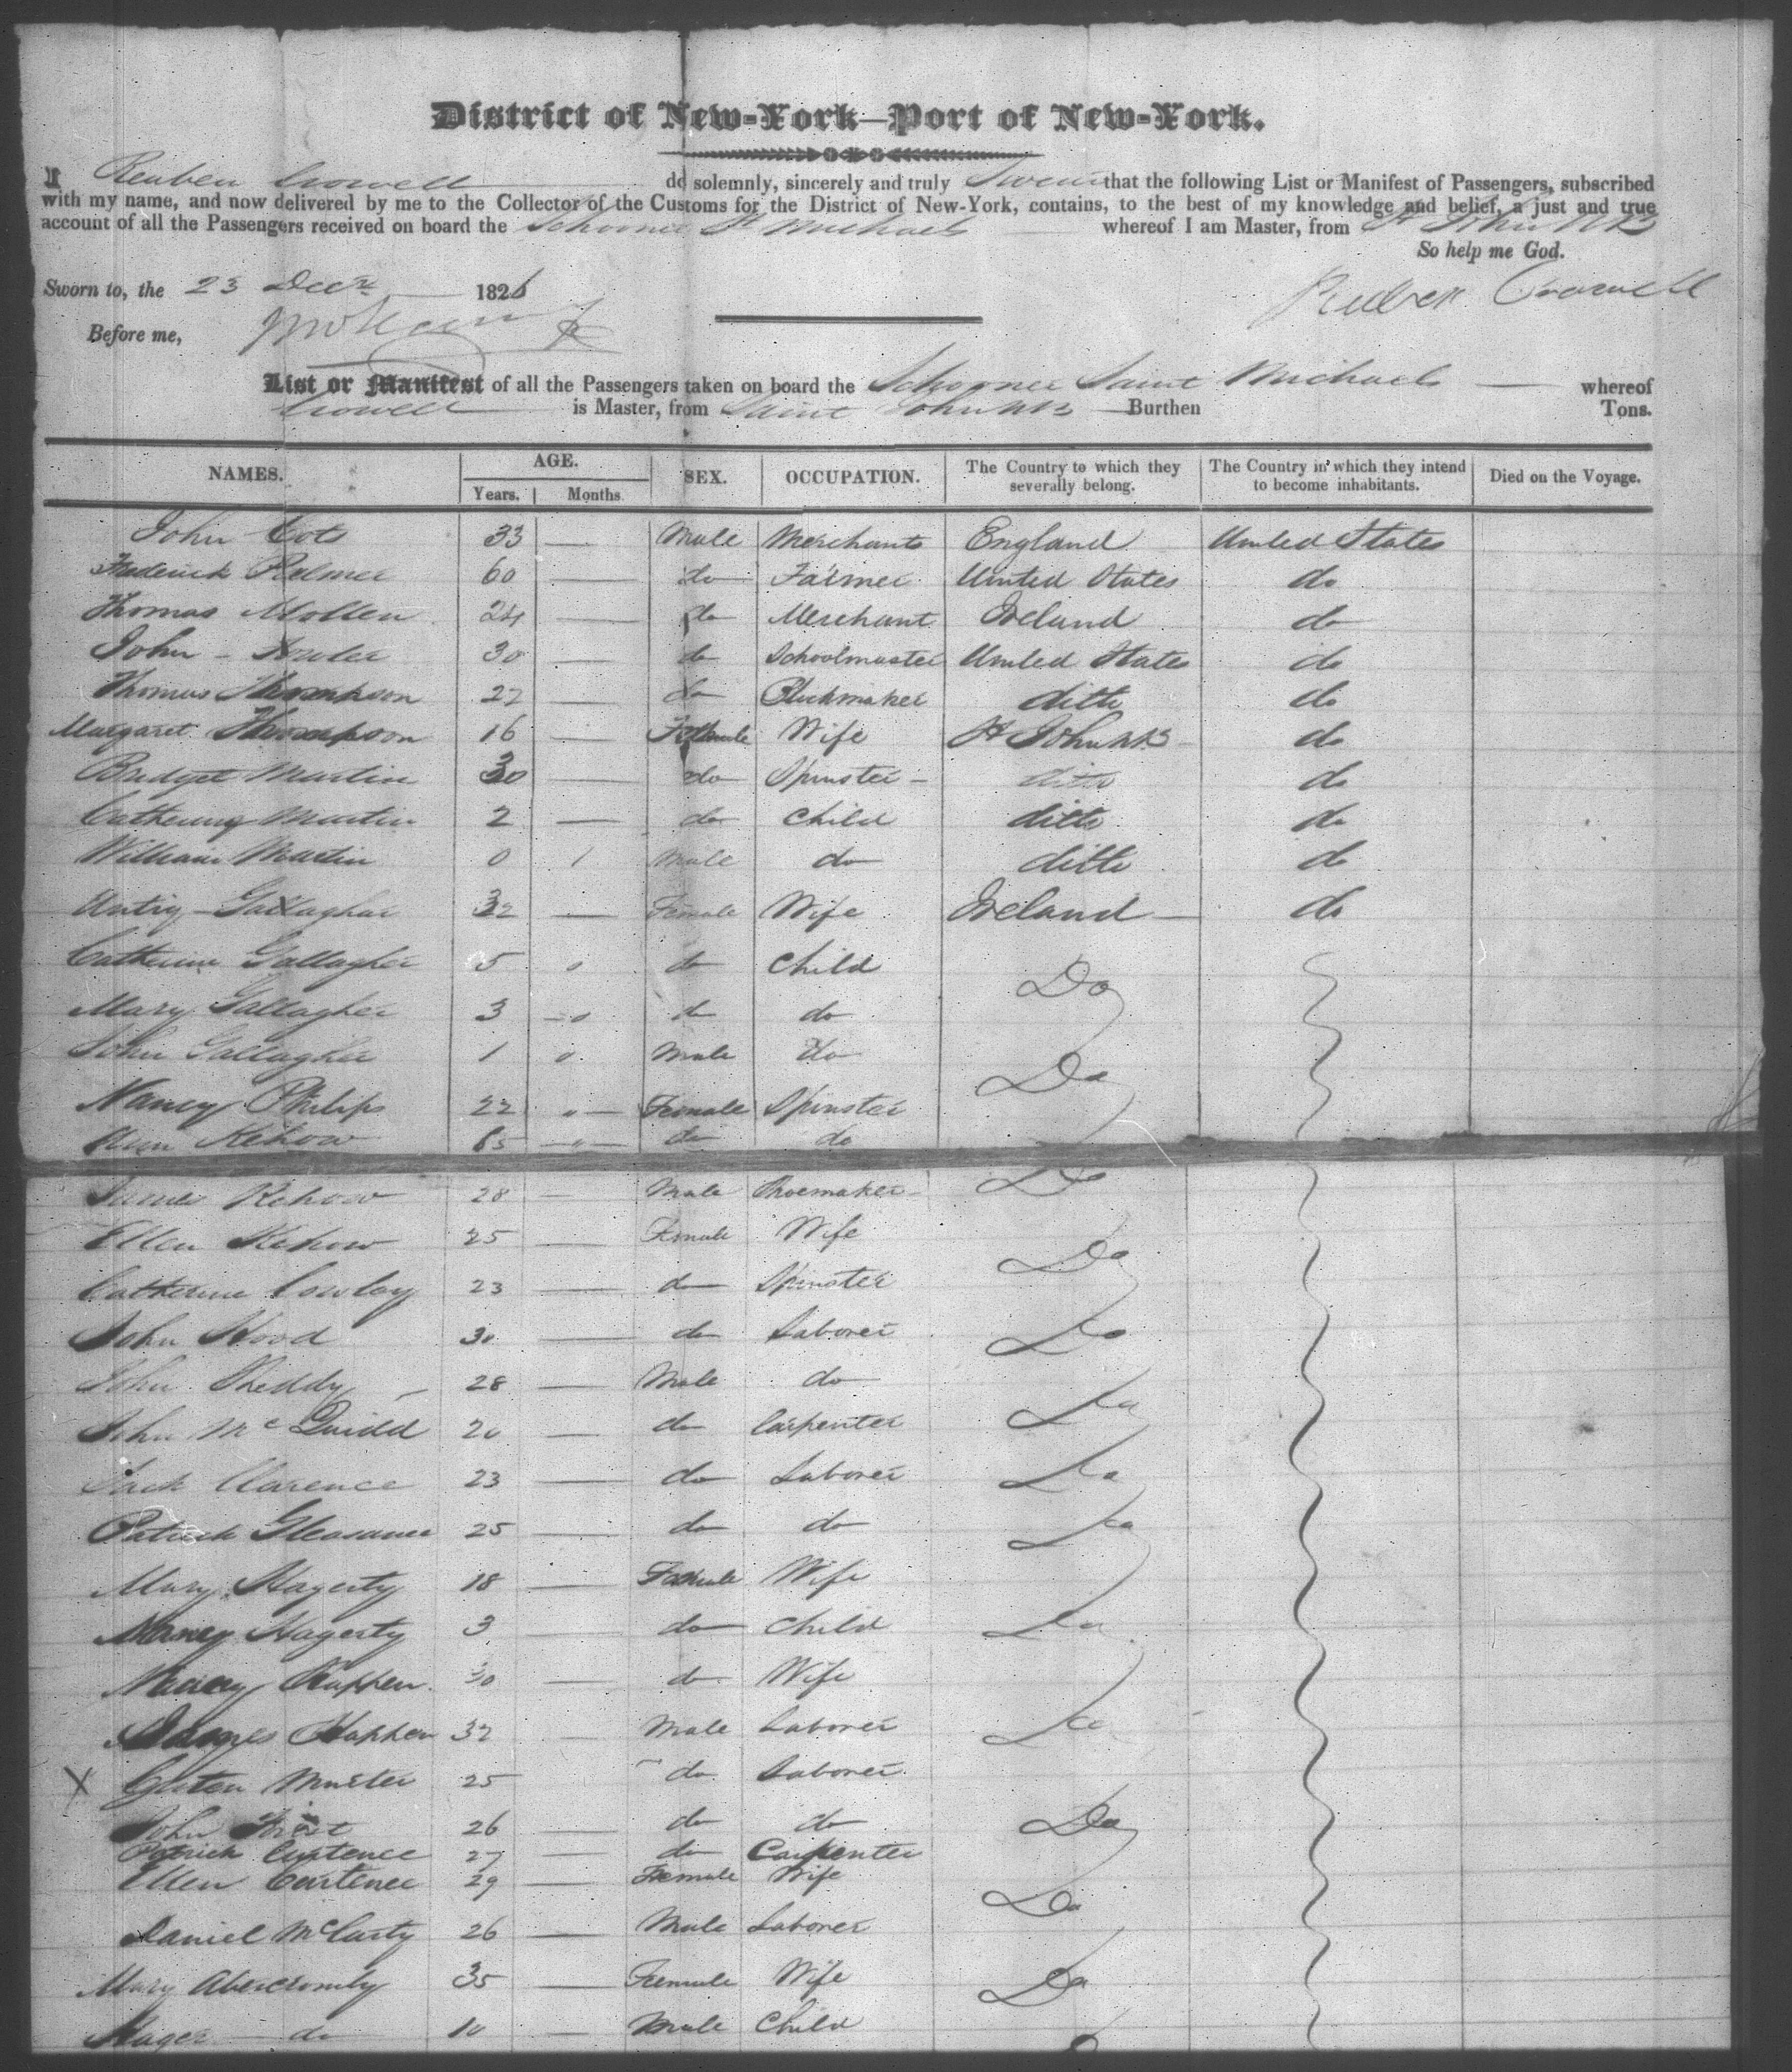 District of New-York—Port of New-York.
I Reuben Crowell do solemnly, sincerely and truly Swear that the following List or Manifest of Passengers, subscribed
with my name, and now delivered by me to the Collector of the Customs for the District of New-York, contains, to the best of my knowledge and belief, a just and true
account of all the Passengers received on board the Schooner St Michaels whereof I am Master, from St John NB
So help me God.
Sworn to, the 23 Decr 1826
Reuben Crowell
Before me,
List or Manifest of all the Passengers taken on board the Schooner Saint Michaels whereof
Crowell is Master, from Saint John NB Burthen Tons.
NAMES. AGE. SEX. OCCUPATION. The Country to which they severally belong. The Country in which they intend to become inhabitants. Died on the Voyage.
Years. Months
John 33 — Male Merchants England United States
Frederick Palmer 60 — do Farmer United States do
Thomas Mollen 24 — do Merchant Ireland do
John 30 — do Schoolmaster United States do
Thomas Thompson 27 — do ditto do
Margaret Thompson 16 — Female Wife St John NB do
Bridget Martin 30 — do Spinster ditto do
Catherine Martin 2 — do Child ditto do
William Martin 0 1 Male do ditto do
Gallagher 32 — Female Wife Ireland do
Catherine Gallagher 5 0 do Child Do
Mary Gallagher 3 0 do do
John Gallagher 1 0 Male do Do
Nancy Philips 22 " Female Spinster
Ann Kehow 65 " do do
James Kehow 28 — Male Shoemaker Do
Ellen Kehow 25 — Female Wife Do
Catherine Cowley 23 — do Spinster
John Hood 30 — do Laborer Do
John 28 — Male do
John Mc 20 — do Carpenter Do
Jack Clarence 23 — do Laborer Do
Patrick 25 — do do Do
Mary Hagerty 18 — Female Wife
Nancy Hagerty 3 — do Child Do
Nancy 30 — do Wife
James 32 — Male Laborer Do
X 25 do Laborer
John 26 — do do Do
Patrick 27 — do Carpenter
Ellen 29 — Female Wife Do
Daniel McCarty 26 — Male Laborer
Mary Abercromby 35 — Female Wife Do
do 10 — Male Child